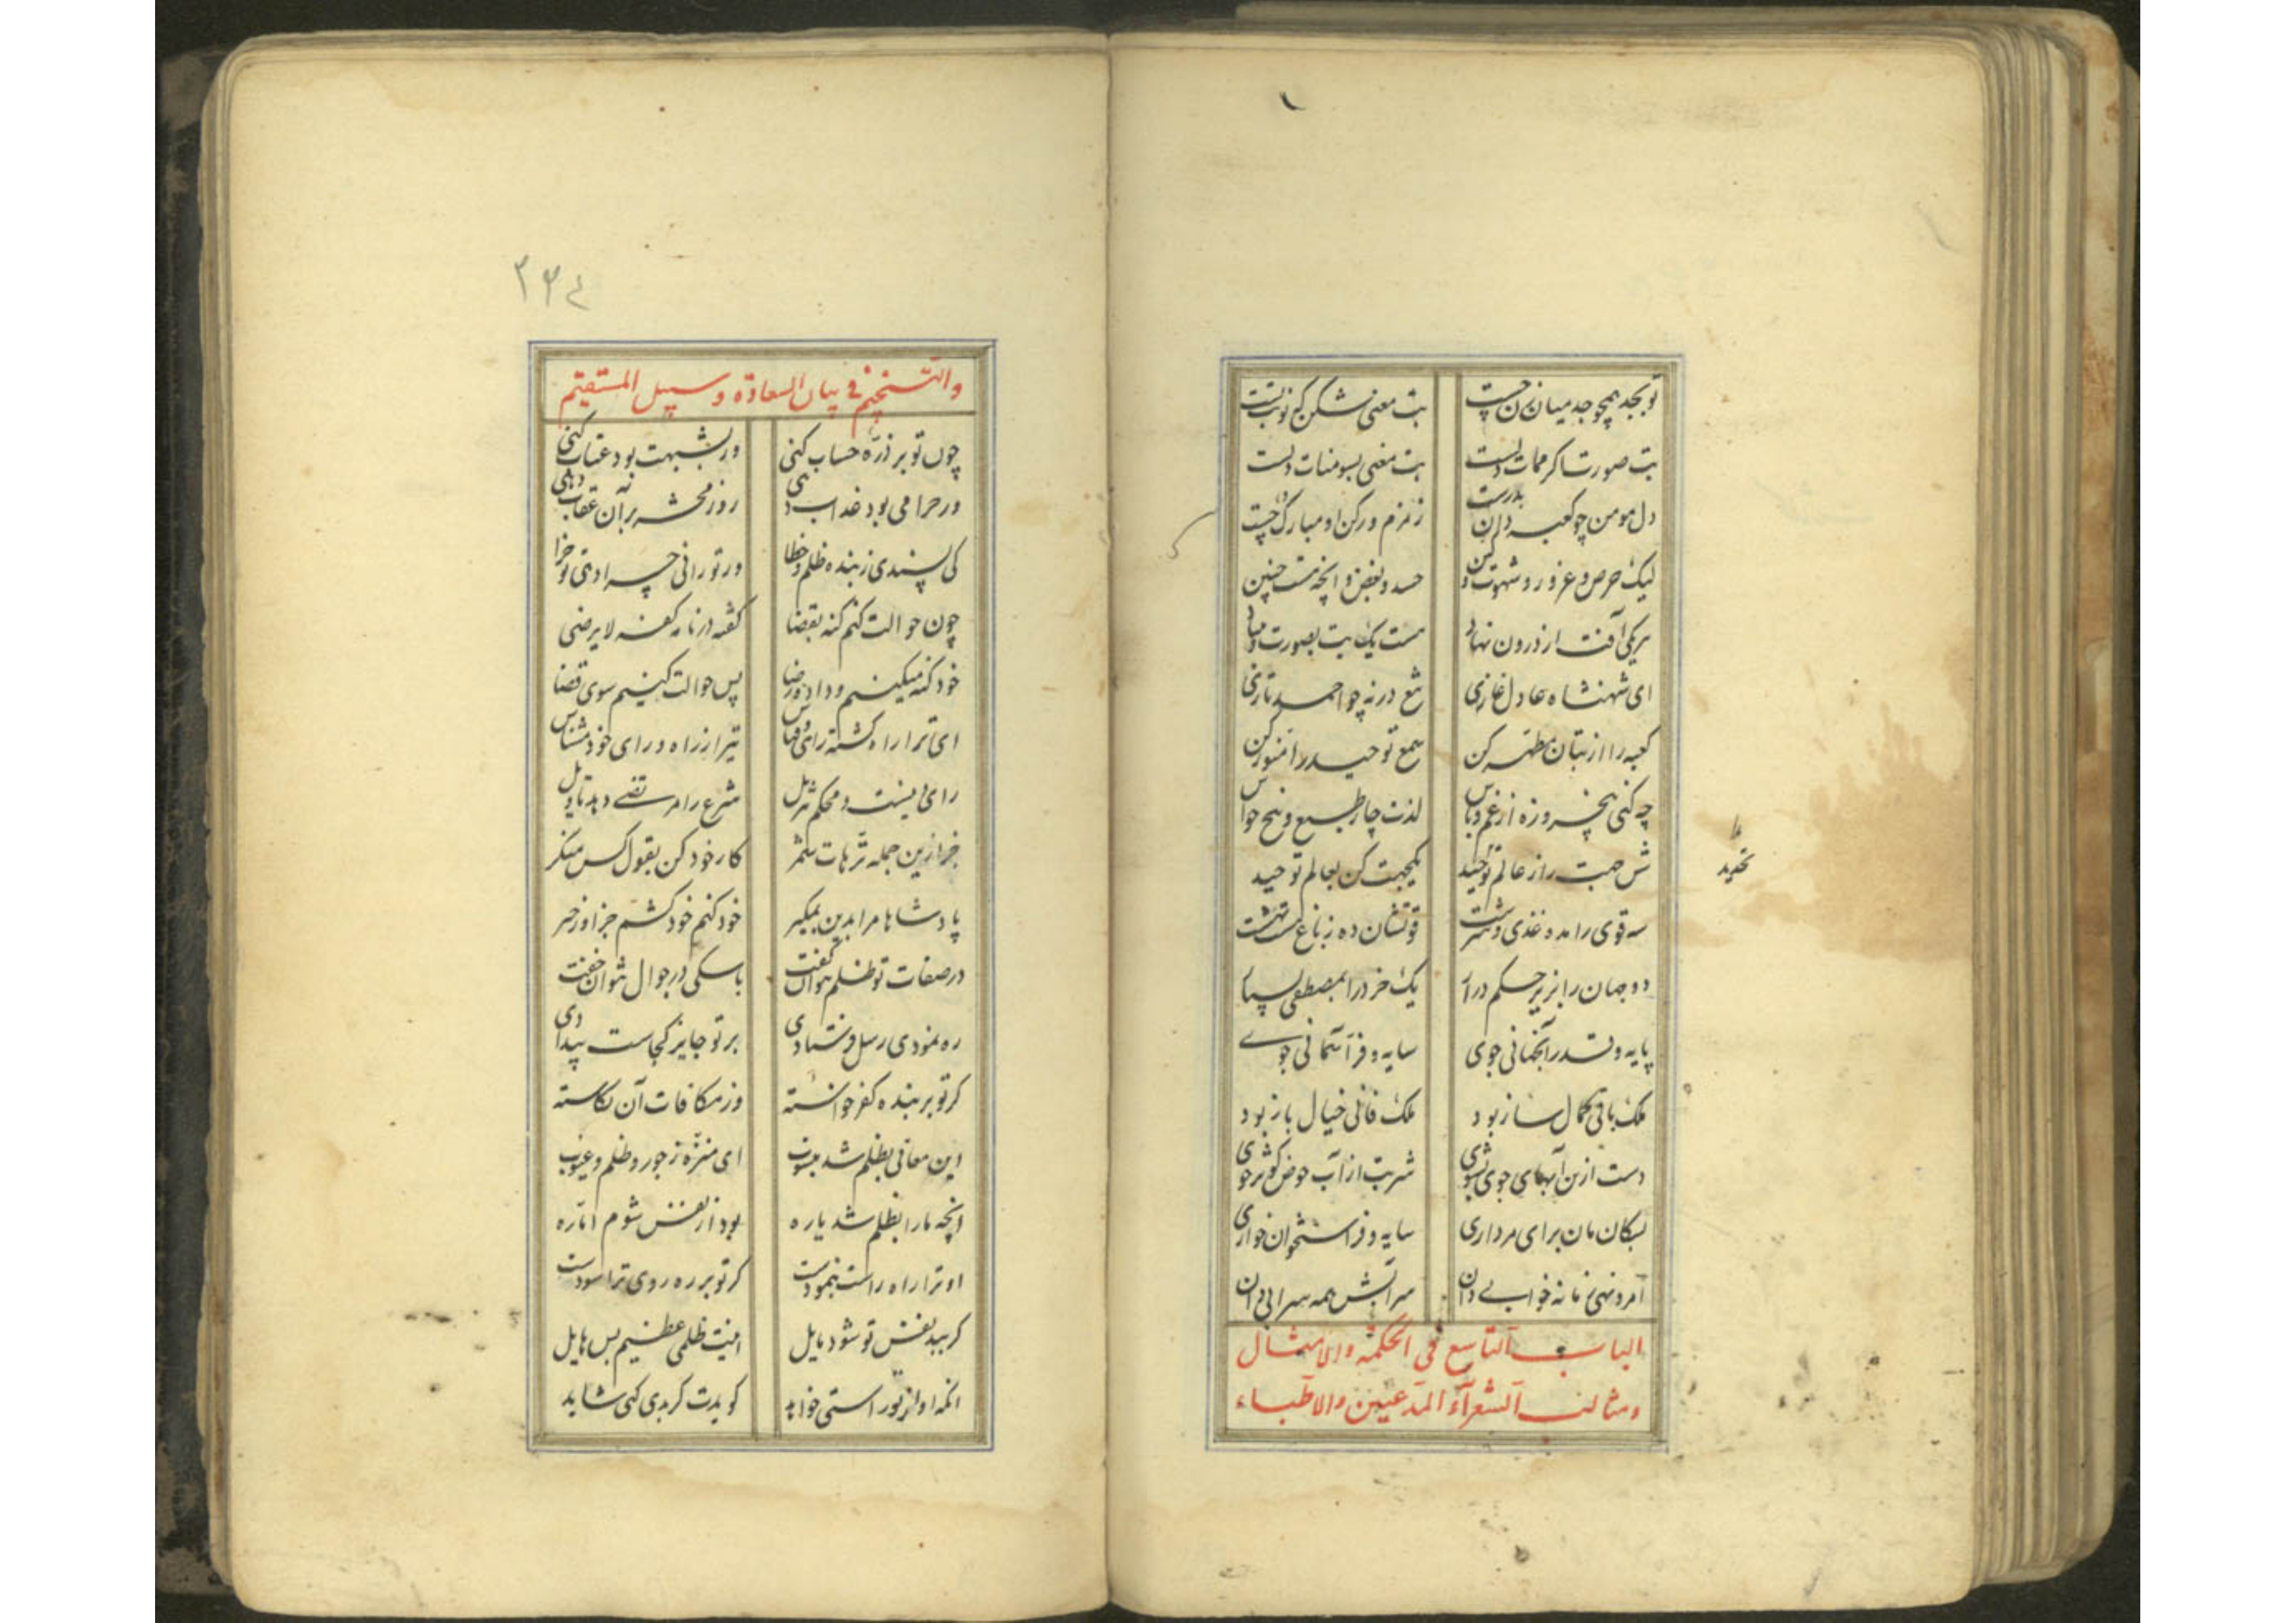 تو بجد همچو جد میان زن چست بت معنی شکن که نوبت تست
بت صورت اگر ممات دلست بت معنی بسومنات دلست
دل مومن چو کعبه دان بدرست زمزم و رکن او مبارک چست
لیک حرص و غرور و شهوت و کین حسد و بغض و انچه هست چنین
هر یکی آفت از درون نهاد هست یک بت بصورت و
ای شهنشاه عادل غازی تیغ در نه چو احمد تازی
کعبه را از بتان مطهر کن شمع توحید را منور کن
چه کنی پنجروزه از غم و باس لذت چار طبع و پنج حواس
شش جهت را ز عالم توحید یکجهت کن بعالم توحید
تجرید
سه قوی را مده غذی و شرشت قوتشان ده ز باغ هشت بهشت
دو جهان را بزیر حکم درآر یک خرد را بمصطفی بسپار
پایه و قدر آنجهانی جوی سایه و فر آسمانی جوی
ملک باقی کمال ساز بود ملک فانی خیال باز بود
دست ازین آبهای جوی بشوی شربت از آب حوض کوثر جوی
بسکان مان برای مرداری سایه و فر استخوان خواری
آمر و نهی زمانه خوابی دان سر آبش همه سرابی دان
الباب التاسع فی الحکمة والامثال
ومثالب الشعرآء المدعیین والاطباء
۲۶٤
والتنجیم فی بیان السعادة وسبیل المستقیم
چون تو بر ذره حساب کنی ور بشبهت بود عتاب کنی
ور حرامی بود عذاب دهی روز محشر بر آن عقاب دهی
کی پسندی ز بنده ظلم و خطا ور تو رانی چرا دهی تو جزا
چون حوالت کنم کنه بقضا کفته در نامه کفه لا یرضی
خود کنه میکنیم و داده رضا پس حوالت کنیم سوی قضا
ای ترا راه کشته رای و قیاس تیر از راه و رای خود مشناس
رای دینست و محکم تنزیل شرع را مرتضی دهد تاویل
جز ازین جمله ترهات شمر کار خود کن بقول کس منکر
پادشاها مرا بدین بمکیر خود کنم خود کشم جزا و زحیر
در صفات تو ظلم نتوان کفت با سکی در جوال نتوان خفت
ره نمودی رسل فرستادی بر تو جایز کجاست بیدادی
کر تو بر بنده کفر خواسته وز مکافات آن نکاسته
این معانی بظلم شد منسوب ای منزه ز جور و ظلم و عیوب
انچه ما را بظلم شد یاره بود از نفس شوم اماره
او ترا راه راست بنمودست کر تو بر ره روی ترا سودست
کر ببد نفس تو شود مایل اینت ظلمی عظیم بس هایل
انکه او از تو راستی خواهد کو بدت کرد کی شاید